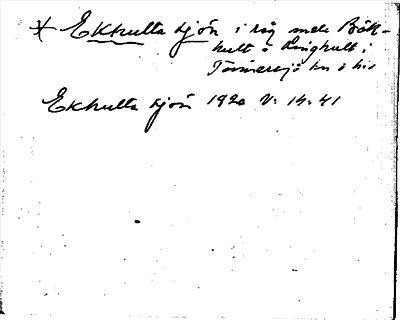 * Ekhulta sjön i råg med Bök-
hult o Ringhult i
Tönnersjö sn o hd
Ekhulta sjön 1920 V. 14. 41